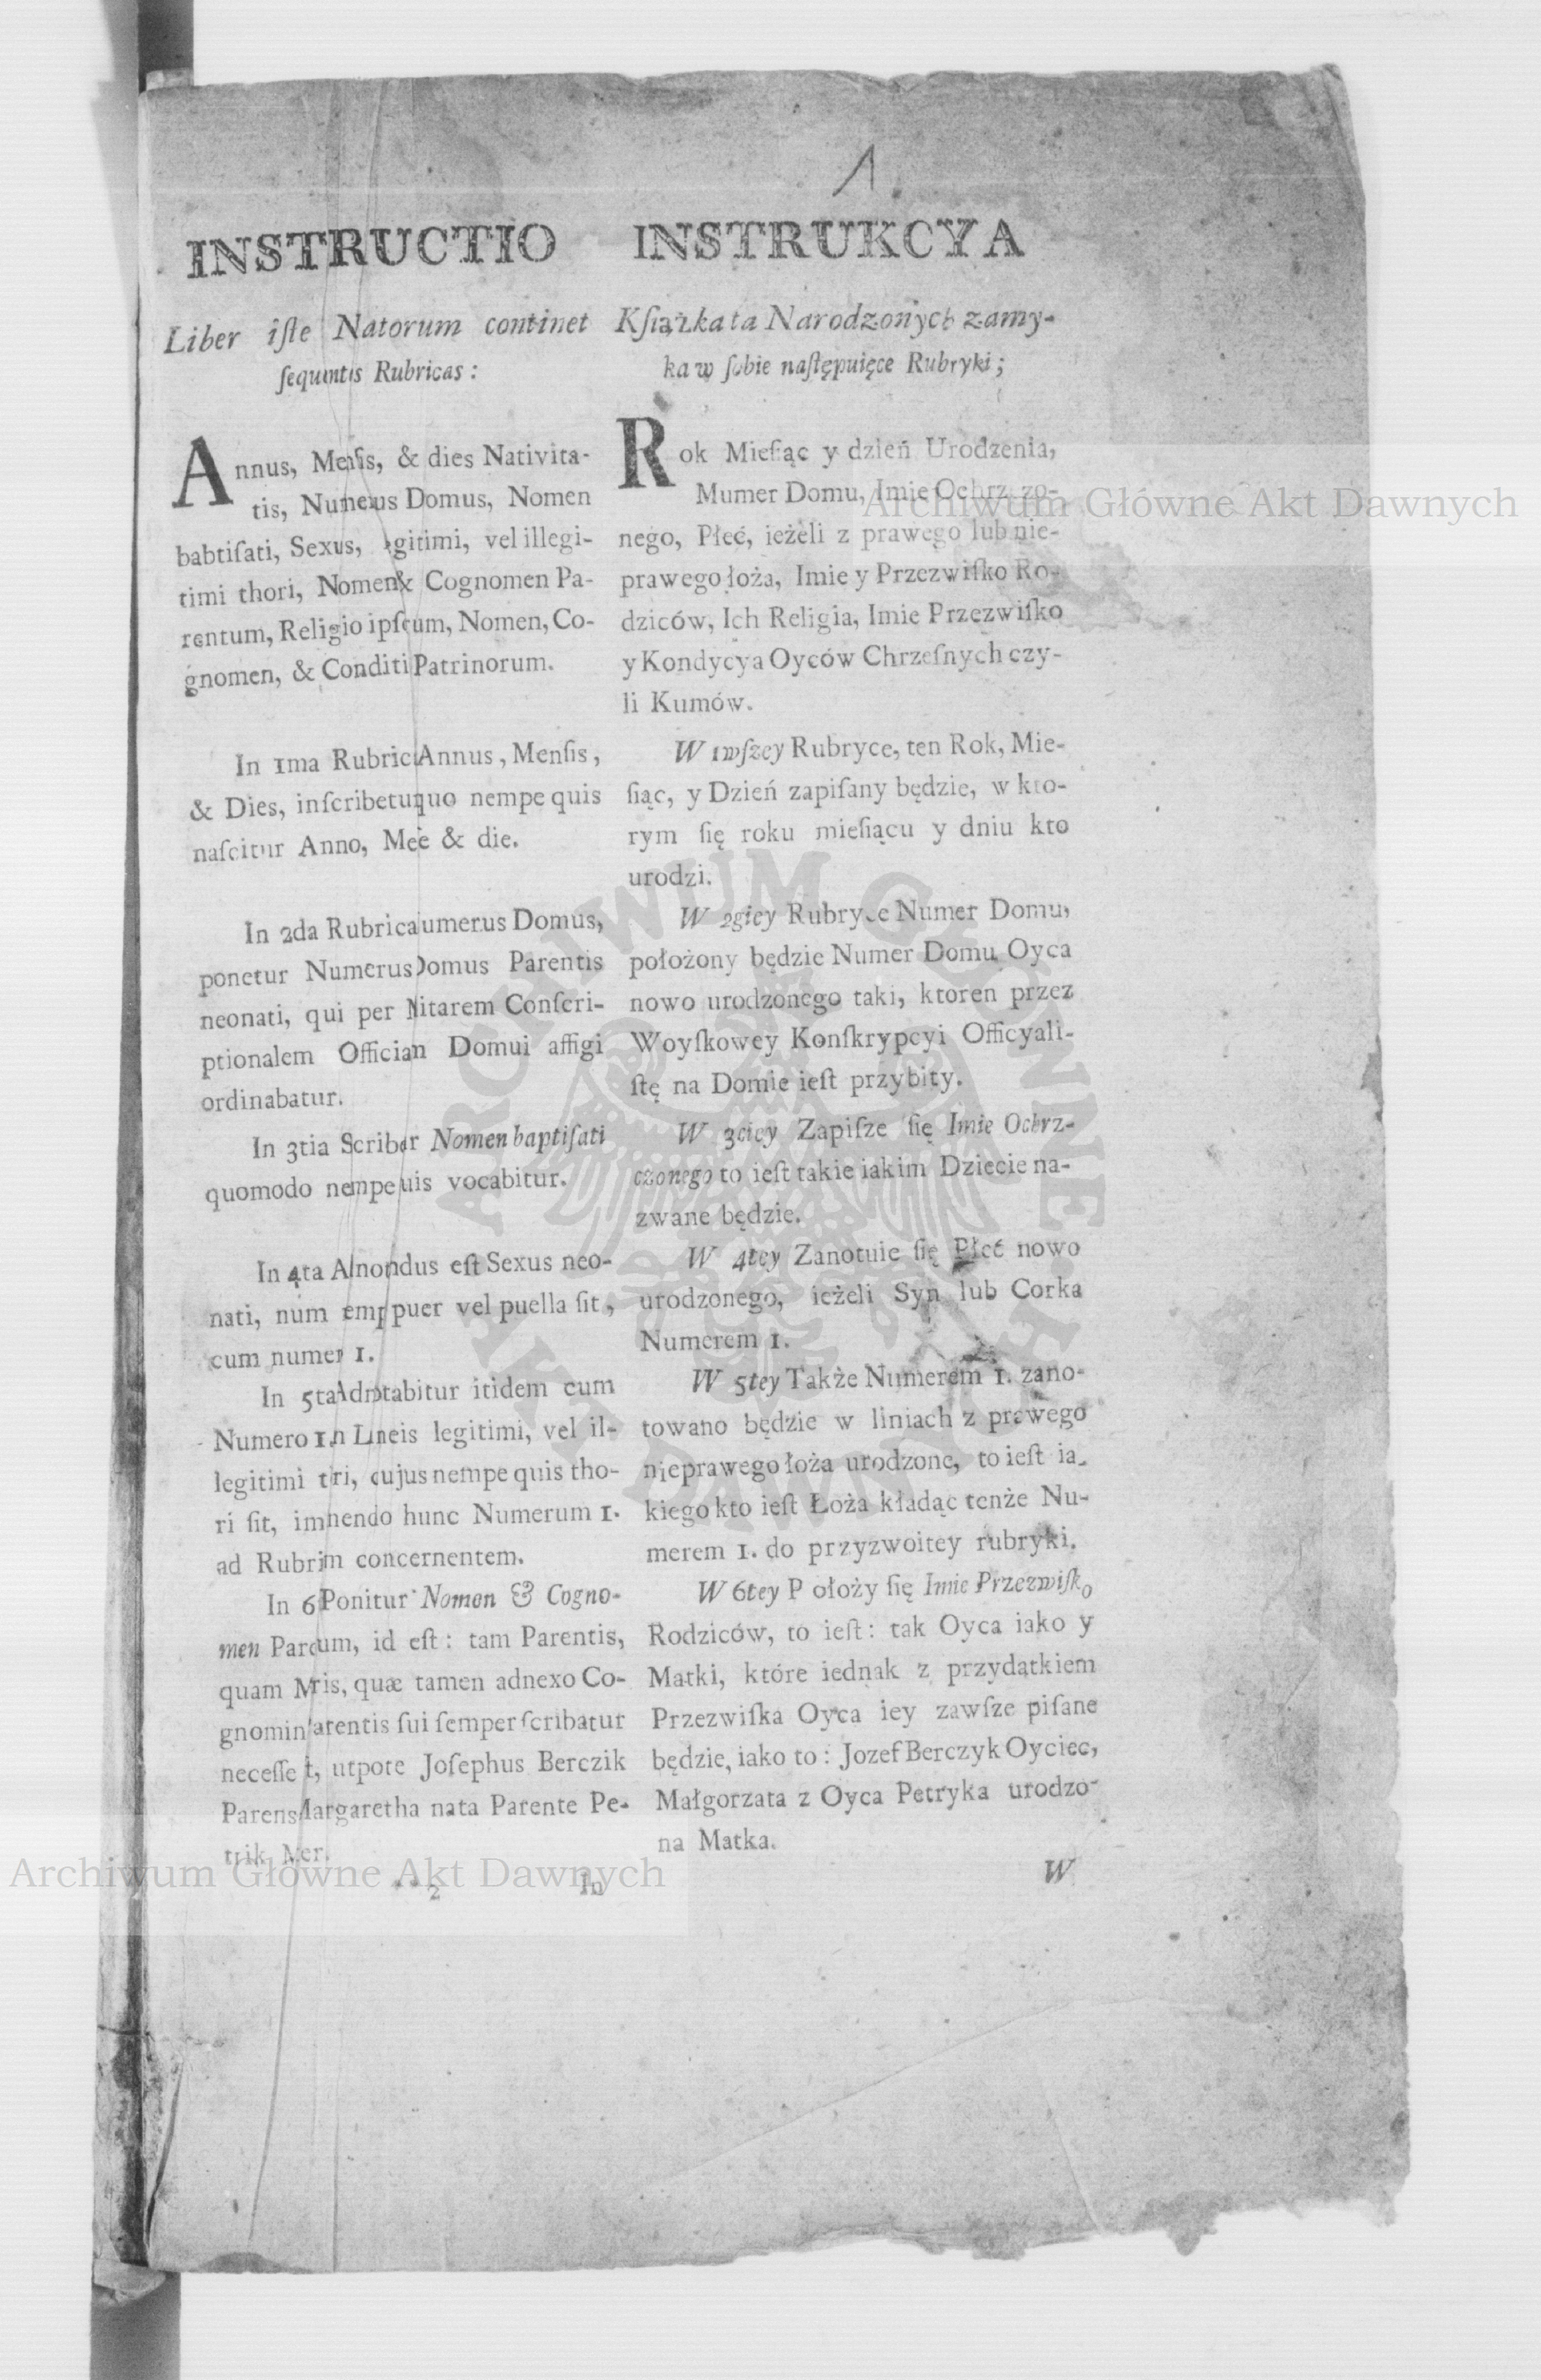 1.
INSTRUCTIO
Liber iſte Natorum continet
ſequentis Rubricas :
Annus, Menſis, & dies Nativita-
tis, Numerus Domus, Nomen
babtiſati, Sexus, egitimi, vel illegi-
timi thori, Nomen & Cognomen Pa-
rentum, Religio ipſorum, Nomen, Co-
gnomen, & Conditi Patrinorum.
In 1ma Rubrica Annus, Menſis,
& Dies, inſcribetur quo nempe quis
naſcitur Anno, Me e & die.
In 2da Rubrica umerus Domus,
ponetur Numerus Domus Parentis
neonati, qui per Militarem Conſcri-
ptionalem Officia n Domui affigi
ordinabatur.
In 3tia Scribe r Nomen baptiſati
quomodo nempe uis vocabitur.
In 4ta A nondus eſt Sexus neo-
nati, num emp puer vel puella ſit,
cum numer 1.
In 5ta Adnotabitur itidem cum
Numero 1. in Lineis legitimi, vel il-
legitimi t ri, cujus nempe quis tho-
ri ſit, im nendo hunc Numerum 1.
ad Rubri m concernentem.
In 6 Ponitur Nomen & Cogno-
men Paren um, id eſt : tam Parentis,
quam M ris, quæ tamen adnexo Co-
gnomin arentis ſui ſemper ſcribatur
neceſſe t, utpote Joſephus Berczik
Parens Margaretha nata Parente Pe-
trik M er.
2 In
INSTRUKCYA
Kſiążka ta Narodzonych zamy-
ka w ſobie naſtępuięce Rubryki ;
Rok Mieſiąc y dzień Urodzenia,
Mumer Domu, Imie Ochrz zo-
nego, Płeć, ieżeli z prawego lub nie-
prawego łoża, Imie y Przezwiſko Ro-
dziców, Ich Religia, Imie Przezwiſko
y Kondycya Oyców Chrzeſnych czy-
li Kumów.
W 1wſzey Rubryce, ten Rok, Mie-
ſiąc, y Dzień zapiſany będzie, w kto-
rym ſię roku mieſiącu y dniu kto
urodzi.
W 2giey Rubryce Numer Domu,
położony będzie Numer Domu Oyca
nowo urodzonego taki, ktoren przez
Woyſkowey Konſkrypcyi Officyali-
ſtę na Domie ieſt przybity.
W 3ciey Zapiſze ſię Imie Ochrz-
czonego to ieſt takie iakim Dziecie na-
zwane będzie.
W 4tey Zanotuie ſię Płeć nowo
urodzonego, ieżeli Syn lub Corka
Numerem 1.
W 5tey Także Numerem 1. zano-
towano będzie w liniach z prawego
nieprawego łoża urodzone, to ieſt ia-
kiego kto ieſt Łoża kładąc tenże Nu-
merem 1. do przyzwoitey rubryki.
W 6tey P ołoży ſię Imie Przezwiſko
Rodziców, to ieſt : tak Oyca iako y
Matki, które iednak z przydątkiem
Przezwiſka Oyca iey zawſze piſane
będzie, iako to : Jozef Berczyk Oyciec,
Małgorzata z Oyca Petryka urodzo-
na Matka.
W
Archiwum Główne Akt Dawnych
Archiwum Główne Akt Dawnych
ARCHIWUM GŁÓWNE AKT DAWNYCH